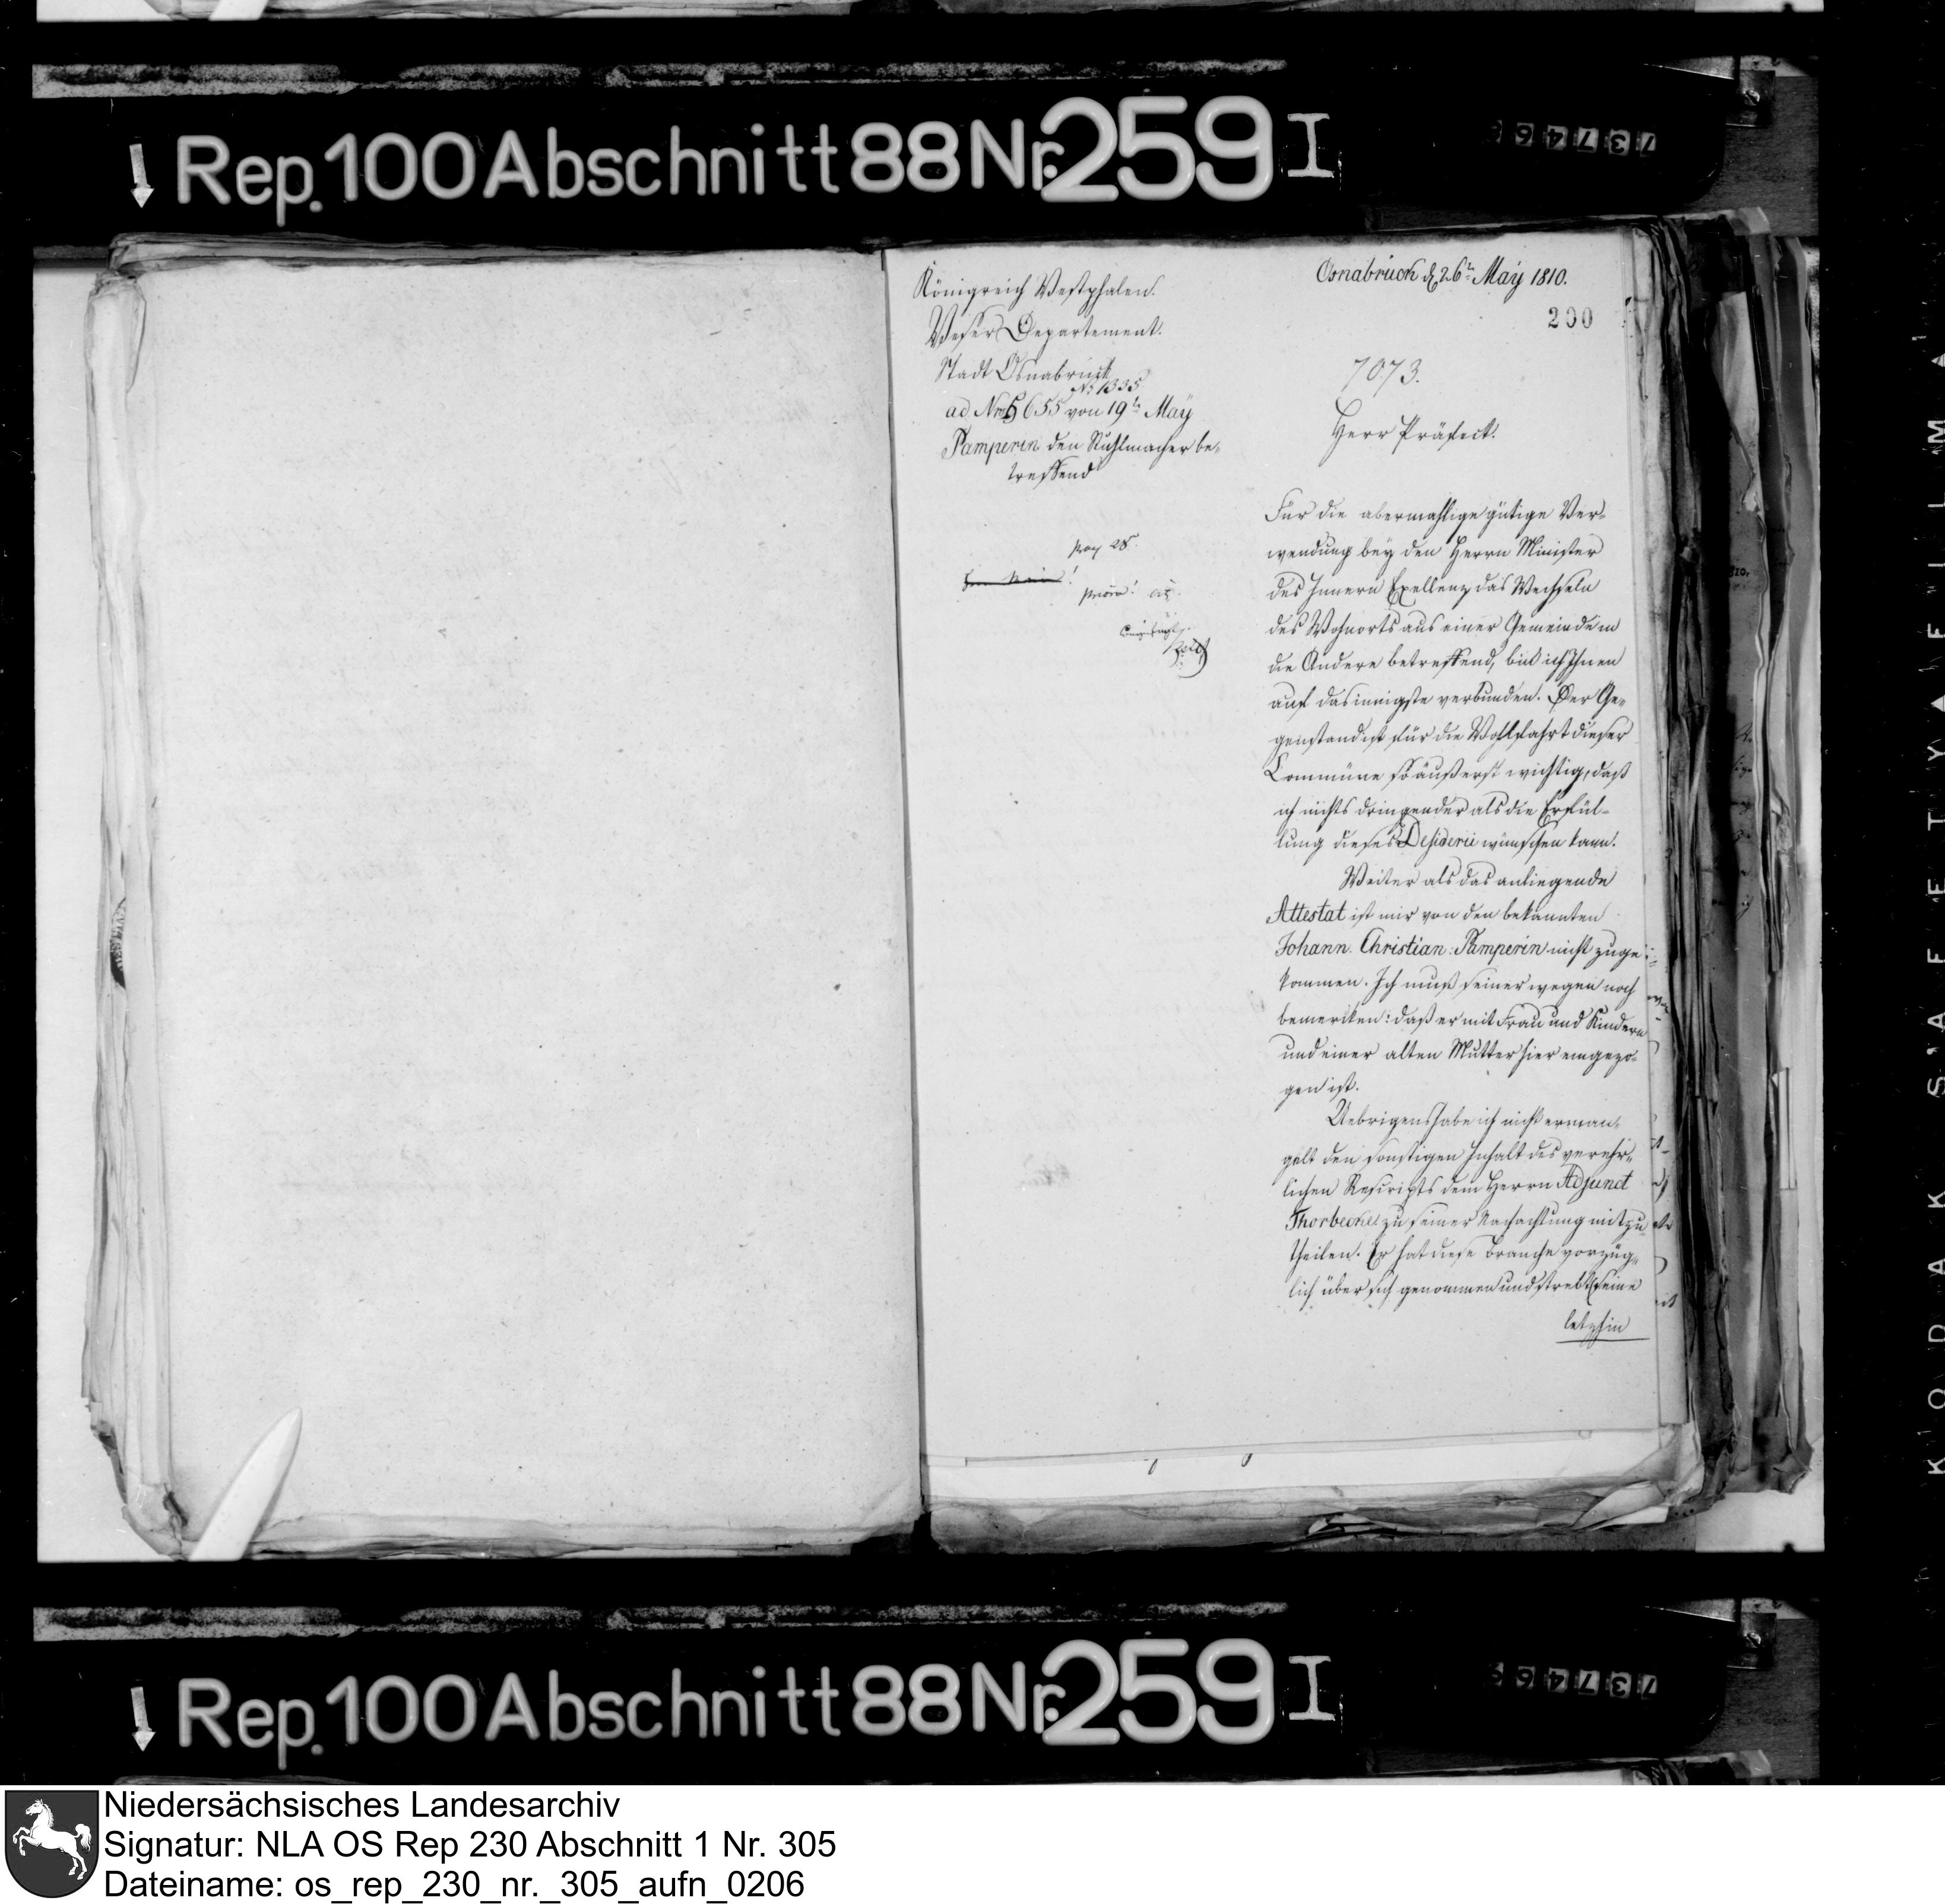 Rep. 100 Abschnitt 88 Nr. 259 I
Königreich Westphalen.
Weser Departement.
Stadt Osnabrück
No 1335
ad Nro 5655 von 19t May
Pamperin den Stuhlmacher be-
treffend
Osnabrück d 26t May 1810.
200
7073.
Herr Präfect!
Für die abermahlige gütige Ver-
wendung bey den Herrn Minister
des Innern Exellenz das Wechseln
des Wohnorts aus einer Gemeinde in
die Andere betreffend, bin ich Ihnen
auf das innigste verbunden. Der Ge-
genstand ist für die Wohlfahrt dieser
Commüne so äußerst wichtig, daß
ich nichts dringender als die Erfül-
lung dieses Desiderii wünschen kann.
Weiter als das anliegende
Attestat ist mir von den bekannten
Johann Christian Pamperin nicht zuge-
kommen. Ich muß seiner wegen noch
bemerken: daß er mit Frau und Kindern
und einer alten Mutter hier eingezo-
gen ist.
Uebrigens habe ich nicht erman-
gelt den sonstigen Inhalt des verehr-
lichen Rescripts dem Herrn Adjunct
Thorbecke zu seiner Nachachtung mitzu-
theilen. Er hat diese Branche vorzüg-
lich über sich genommen und strebt seine
letzhin
Rep. 100 Abschnitt 88 Nr. 259 I
KODAK SAFETY FILM
Niedersächsisches Landesarchiv
Signatur: NLA OS Rep 230 Abschnitt 1 Nr. 305
Dateiname: os_rep_230_nr._305_aufn_0206